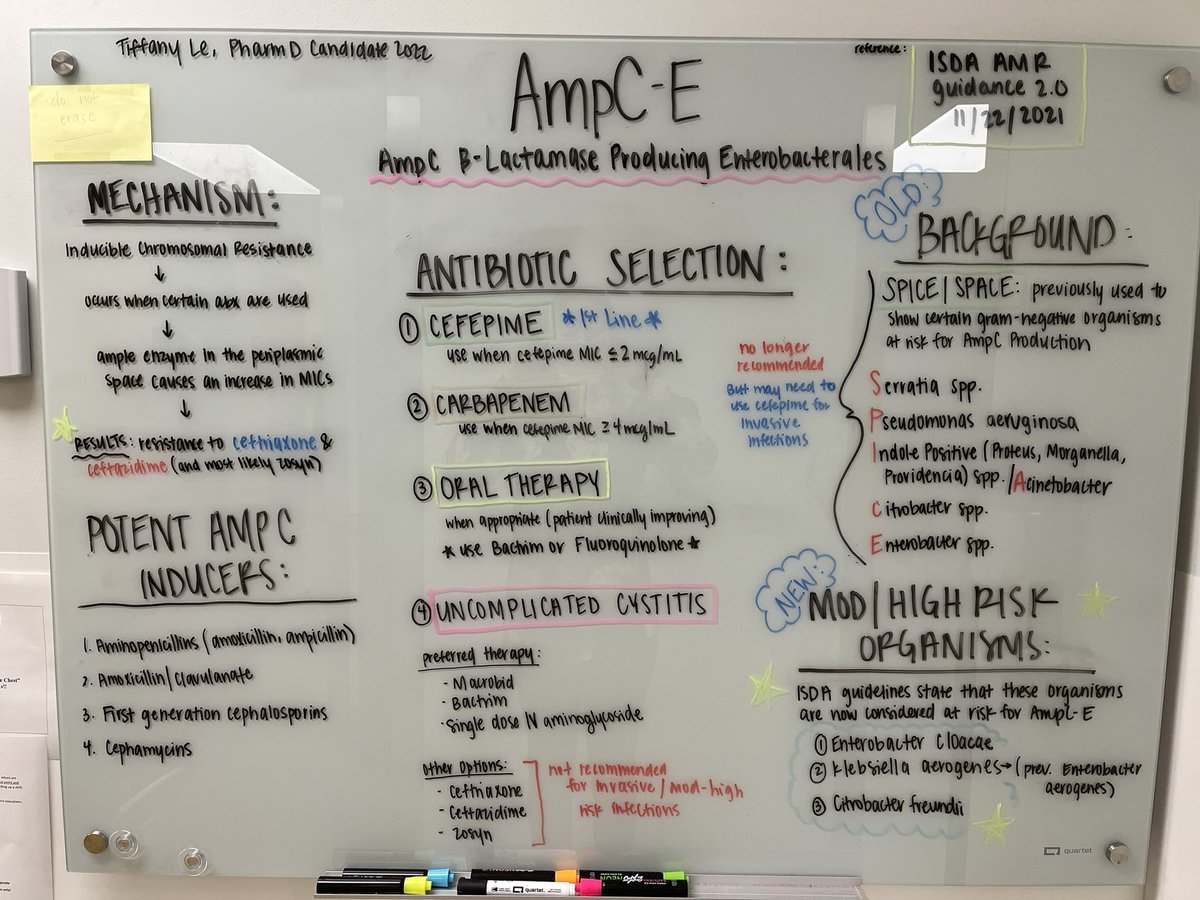 Tiffany Le, PharmD Candidate 2022
do not
erase
AmpC-E
AmpC B-Lactamase Producing Enterobacterales
reference:
ISDA AMR
guidance 2.0
11/22/2021
MECHANISM:
Inducible Chromosomal Resistance
↓
occurs when certain abx are used
↓
ample enzyme in the periplasmic
space causes an increase in MICs
↓
RESULTS: resistance to ceftriaxone &
ceftazidime (and most likely zosyn)
POTENT AMPC
INDUCERS:
1. Aminopenicillins (amoxicillin, ampicillin)
2. Amoxicillin/Clavulanate
3. First generation cephalosporins
4. Cephamycins
ANTIBIOTIC SELECTION:
① CEFEPIME *1st Line*
use when cefepime MIC ≤ 2 mcg/mL
② CARBAPENEM
use when cefepime MIC ≥ 4 mcg/mL
③ ORAL THERAPY
when appropriate (patient clinically improving)
* use Bactrim or Fluoroquinolone *
④ UNCOMPLICATED CYSTITIS
preferred therapy:
- Macrobid
- Bactrim
- Single dose IV aminoglycoside
Other Options:
- Ceftriaxone
- Ceftazidime
- Zosyn
not recommended
for invasive/mod-high
risk infections
no longer
recommended
But may need to
use cefepime for
invasive
infections
OLD:
BACKGROUND:
SPICE/SPACE: previously used to
show certain gram-negative organisms
at risk for AmpC Production
Serratia spp.
Pseudomonas aeruginosa
Indole Positive (Proteus, Morganella,
Providencia) spp./Acinetobacter
Citrobacter spp.
Enterobacter spp.
NEW:
MOD/HIGH RISK
ORGANISMS:
ISDA guidelines state that these organisms
are now considered at risk for AmpC-E
① Enterobacter cloacae
② Klebsiella aerogenes → (prev. Enterobacter
aerogenes)
③ Citrobacter freundii
quartet
quartet.